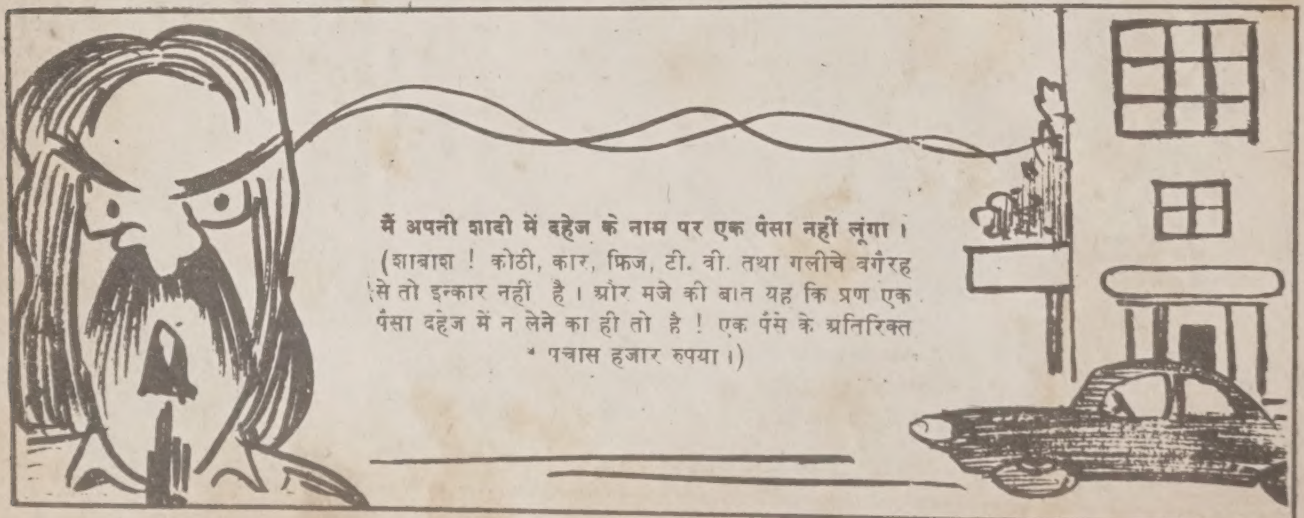 मैं अपनी शादी में दहेज के नाम पर एक पैसा नहीं लूंगा ।
(शाबाश ! कोठी, कार, फ्रिज, टी. वी. तथा गलीचे वगैरह
से तो इन्कार नहीं है । और मजे की बात यह कि प्रण एक
पैसा दहेज में न लेने का ही तो है ! एक पैसे के अतिरिक्त
पचास हजार रुपया ।)